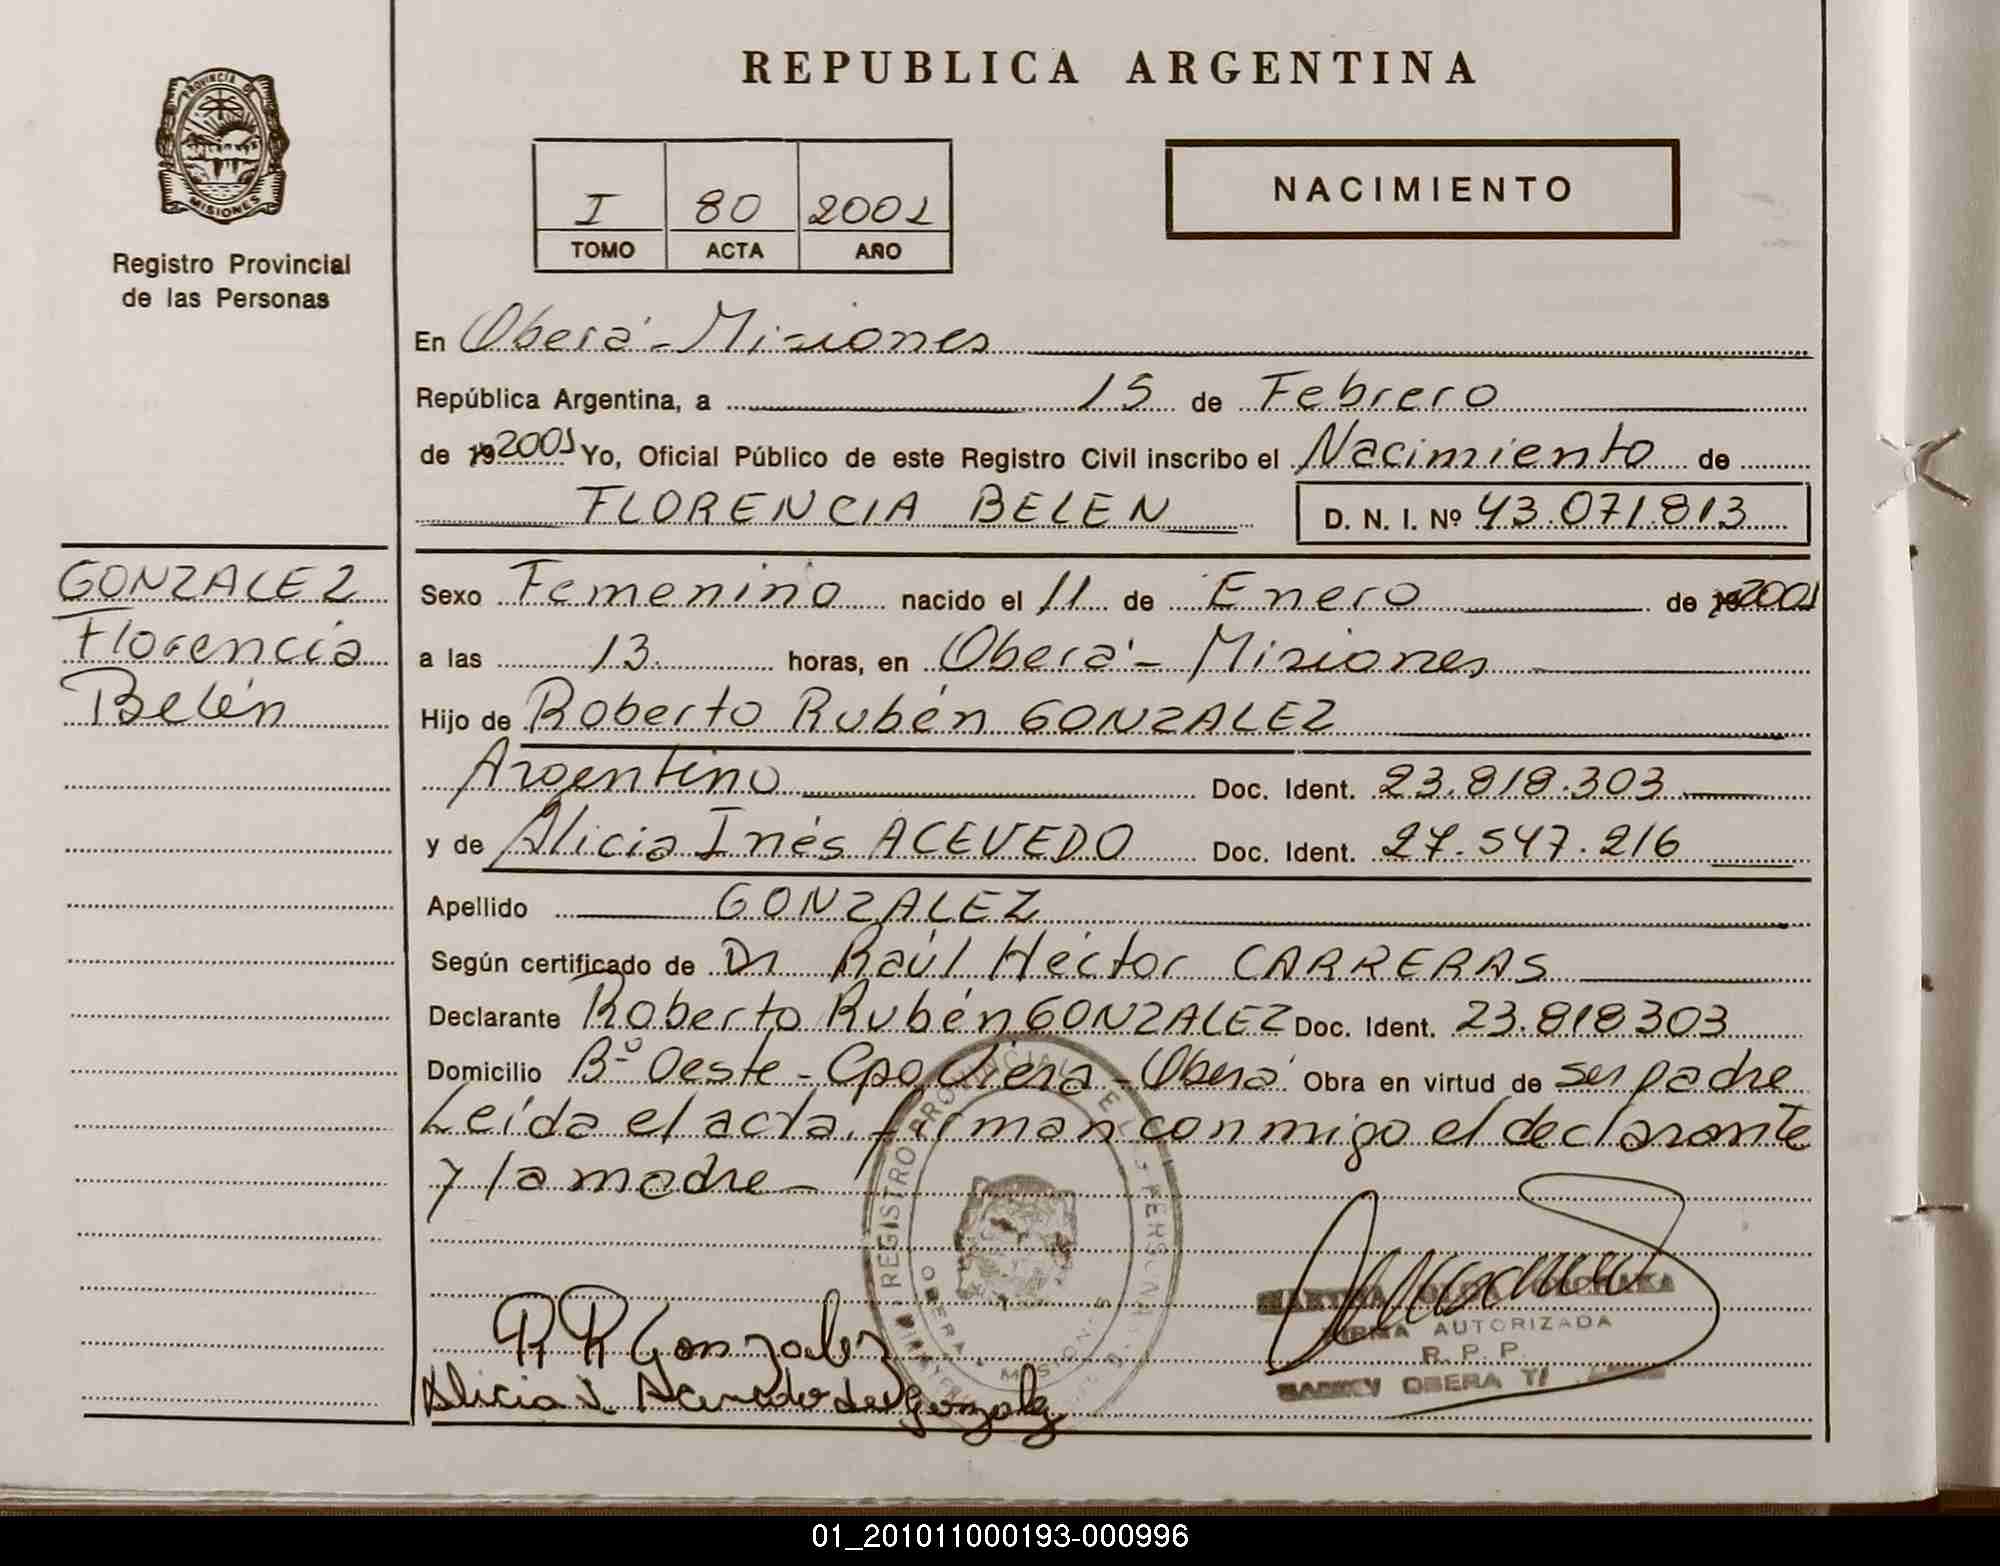 REPUBLICA ARGENTINA
PROVINCIA DE
MISIONES
Registro Provincial
de las Personas
I 80 2001
TOMO ACTA AÑO
NACIMIENTO
En Oberá - Misiones
República Argentina, a 15 de Febrero
de 19 2001 Yo, Oficial Público de este Registro Civil inscribo el Nacimiento de
FLORENCIA BELEN D. N. I. Nº 43.071.813
GONZALEZ
Florencia
Belén
Sexo Femenino nacido el 11 de Enero de 19 2001
a las 13. horas, en Oberá - Misiones
Hijo de Roberto Rubén GONZALEZ
Argentino Doc. Ident. 23.818.303
y de Alicia Inés ACEVEDO Doc. Ident. 27.547.216
Apellido GONZALEZ
Según certificado de Dr Raúl Héctor CARRERAS
Declarante Roberto Rubén GONZALEZ Doc. Ident. 23.818303
Domicilio Bº Oeste - Cpo Viera - Oberá Obra en virtud de ser padre
Leída el acta, firman conmigo el declarante
y la madre -
REGISTRO PROVINCIAL DE LAS PERSONAS
OBERA MISIONES
R R Gonzalez
Alicia I. Acevedo de Gonzalez
FIRMA AUTORIZADA
R. P. P.
OBERA
01_201011000193-000996